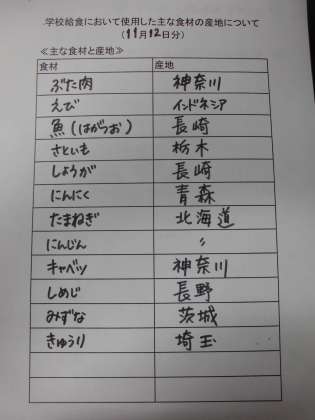 学校給食において使用した主な食材の産地について
(11月12日分)
≪主な食材と産地≫
食材 産地
ぶた肉 神奈川
えび インドネシア
魚(はがつお) 長崎
さといも 栃木
しょうが 長崎
にんにく 青森
たまねぎ 北海道
にんじん 〃
キャベツ 神奈川
しめじ 長野
みずな 茨城
きゅうり 埼玉